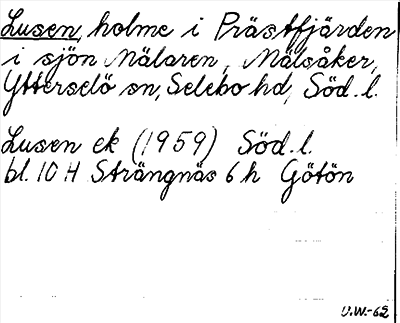 Lusen, holme i Prästfjärden
i sjön Mälaren, Mälsåker,
Ytterselö sn, Selebo hd, Söd. l.
Lusen ek (1959) Söd. l.
bl. 10 H Strängnäs 6 h Götön
U.W.-62